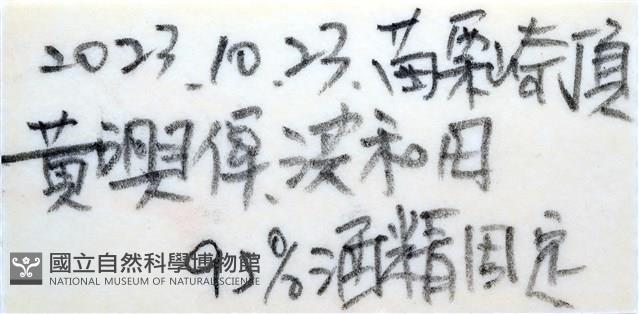 2023.10.23.苗栗崎頂
黃興倬、梁和田
95%酒精固定
國立自然科學博物館
NATIONAL MUSEUM OF NATURAL SCIENCE